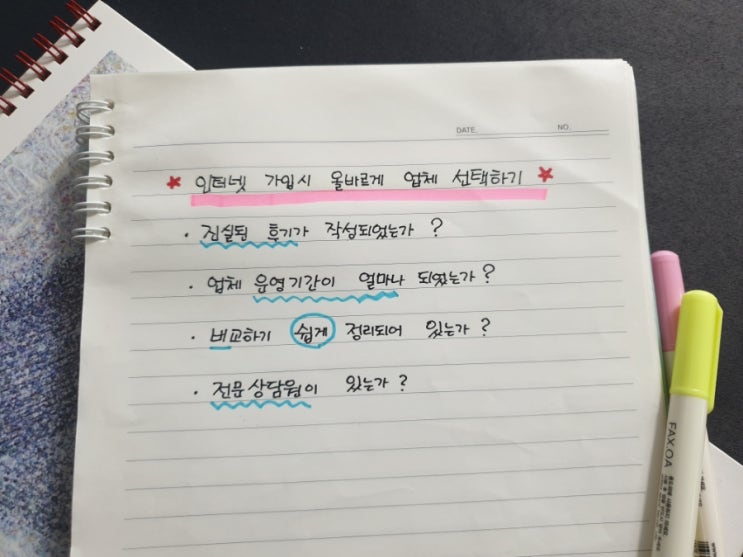 DATE. NO.
★ 인터넷 가입시 올바르게 업체 선택하기 ★
· 진실된 후기가 작성되었는가 ?
· 업체 운영기간이 얼마나 되었는가 ?
· 비교하기 쉽게 정리되어 있는가 ?
· 전문상담원이 있는가 ?
FAXOA